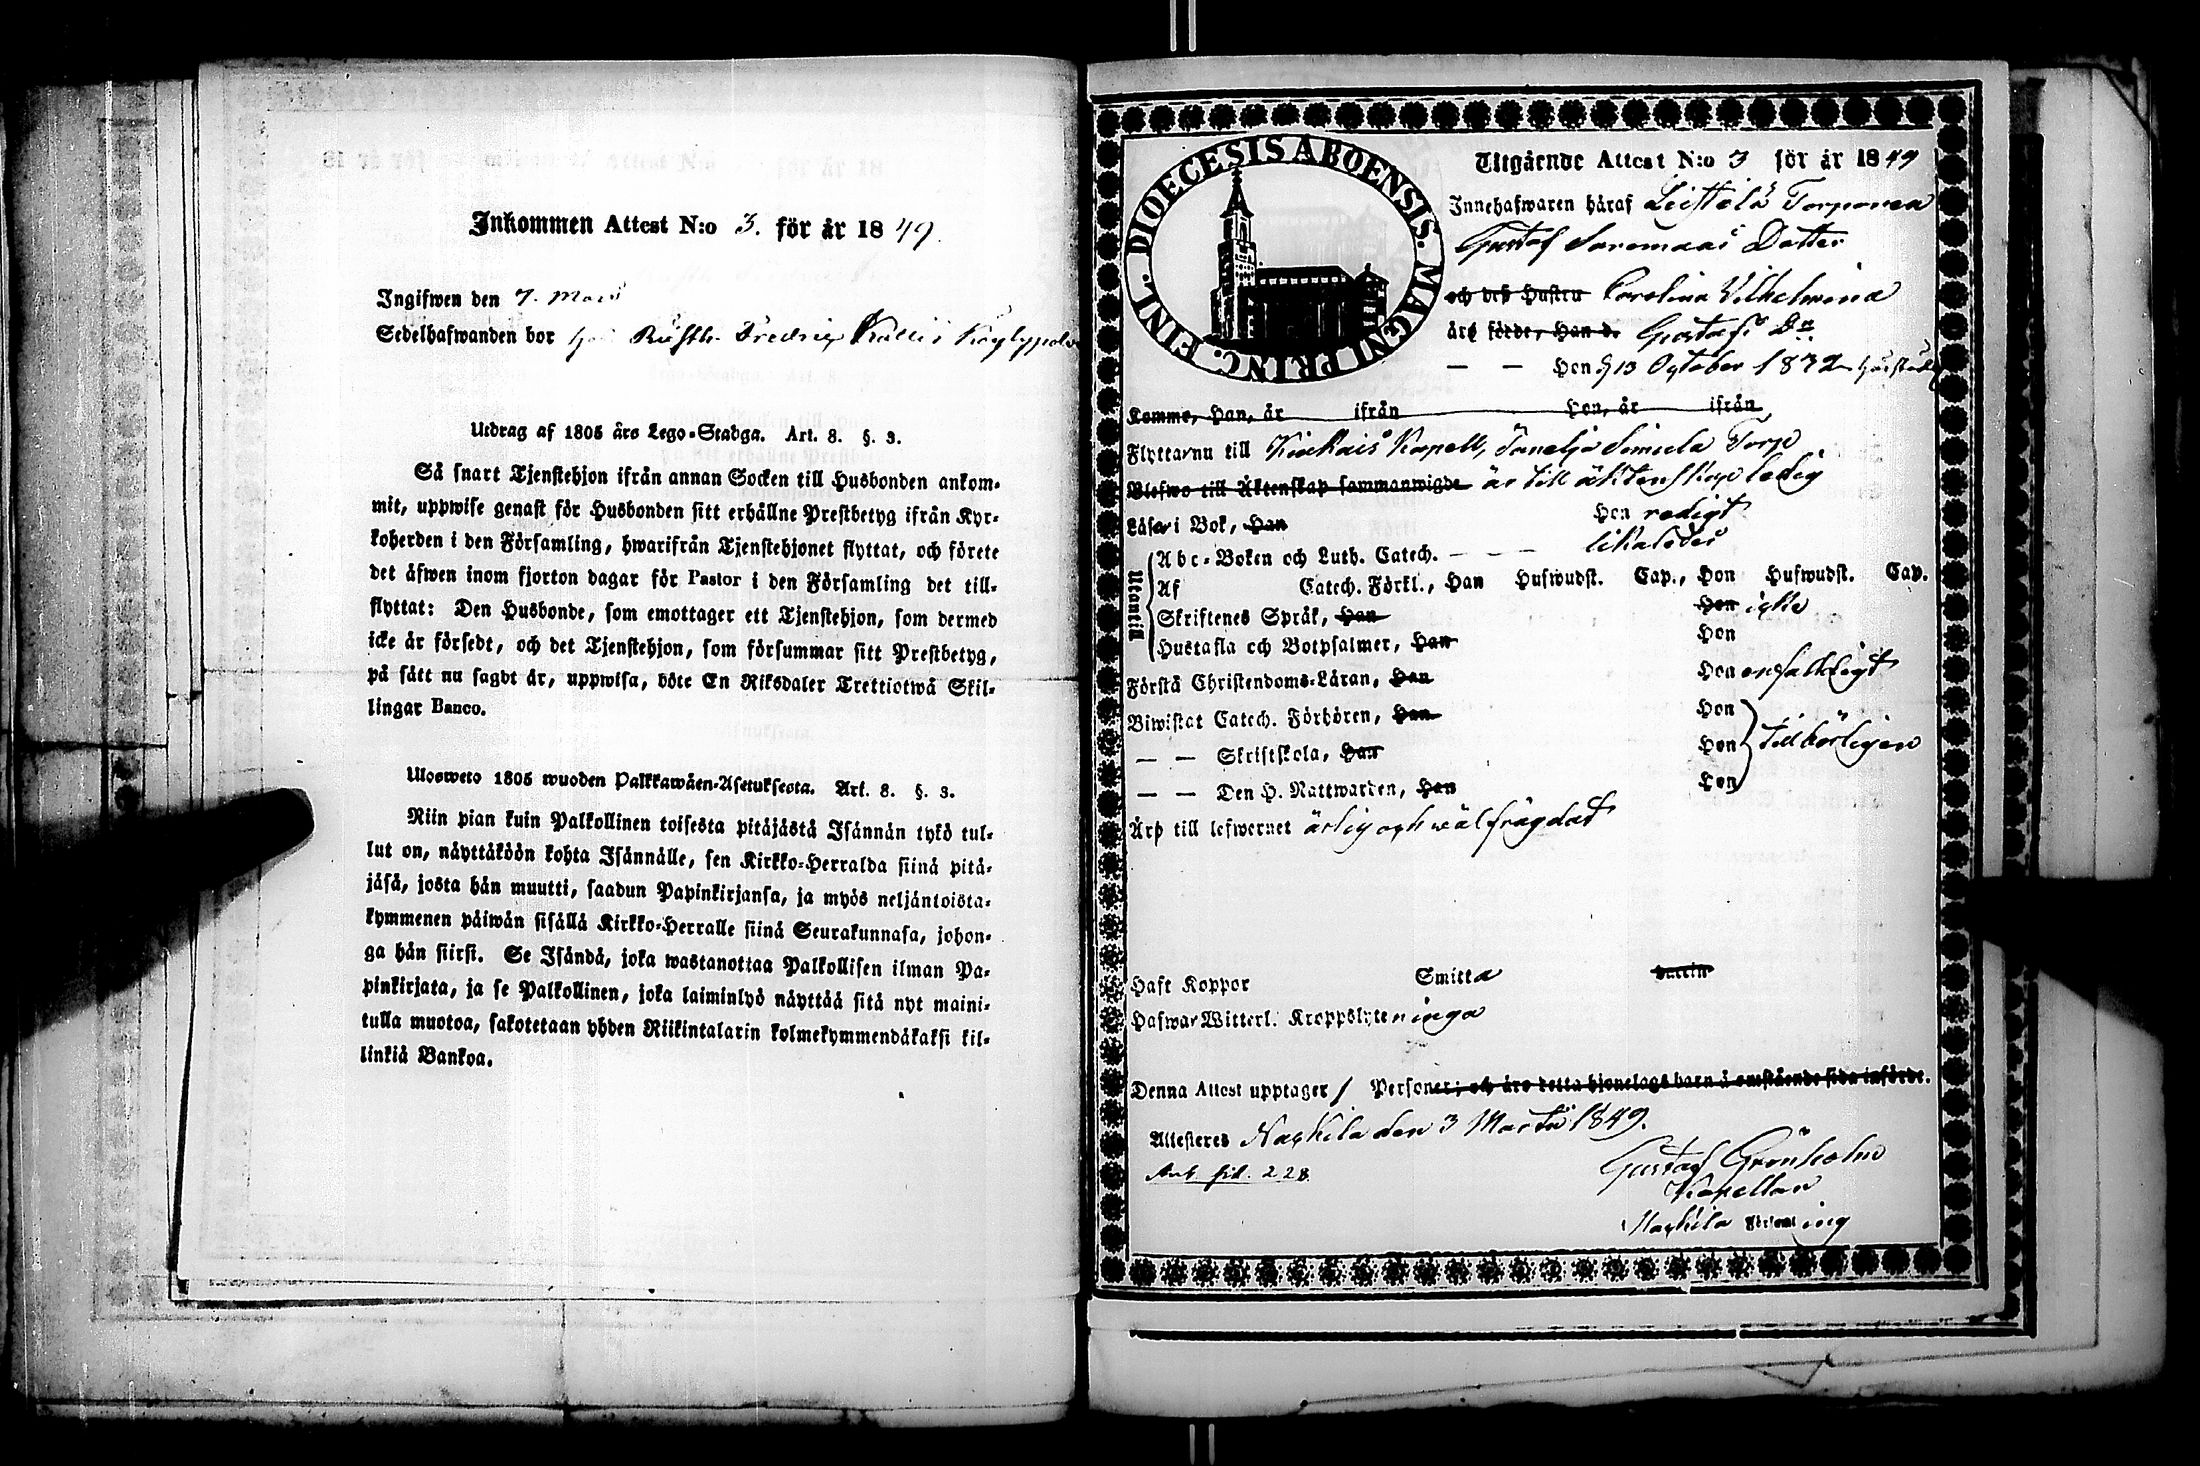 Inkommen Attest N:o 3. för år 1849.
Ingifwen den 7. Mars
Sedelhafwanden bor hos Rusth. Fredric Kallis Köylypolvi
Utdrag af 1805 års Lego-Stadga. Art. 8. §. 3.
Så snart Tjenstehjon ifrån annan Socken till Husbonden ankom-
mit, uppwise genast för Husbonden sitt erhållne Prestbetyg ifrån Kyr-
koherden i den Församling, hwarifrån Tjenstehjonet flyttat, och förete
det äfwen inom fjorton dagar för Pastor i den Församling det till-
flyttat: Den Husbonde, som emottager ett Tjenstehjon, som dermed
icke är försedt, och det Tjenstehjon, som försummar sitt Prestbetyg,
på sätt nu sagdt är, uppwisa, böte En Riksdaler Trettiotwå Skil-
lingar Banco.
Ulosweto 1805 wuoden Palkkawäen-Asetuksesta. Art. 8. §. 3.
Niin pian kuin Palkollinen toisesta pitäjästä Isännän tykö tul-
lut on, näyttäköön kohta Isännälle, sen Kirkko-Herralda siinä pitä-
jäsä, josta hän muutti, saadun Papinkirjansa, ja myös neljäntoista-
kymmenen päiwän sisällä Kirkko-Herralle siinä Seurakunnasa, johon-
ga hän siirsi. Se Isändä, joka wastanottaa Palkollisen ilman Pa-
pinkirjata, ja se Palkollinen, joka laiminlyö näyttää sitä nyt maini-
tulla muotoa, sakotetaan yhden Riikintalarin kolmekymmendäkaksi kil-
linkiä Bankoa.
DIOECESIS ABOENSIS. MAGNI PRINC. FINL.
Utgående Attest N:o 3 för år 1849
Innehafwaren häraf Leistilä Torparen
Gustaf Saremaas Dotter
och deß Hustru Carolina Vilhelmina
äro födde, Han d. Gustafs Dr
— — Hon d 13 October 1832 härstädes
Komme, Han, år ifrån Hon, år ifrån
Flyttar nu till Kiukais Kapell, Simula Torp
Blefwo till Äktenskap sammanwigde är till äktenskap ledig
Läsa i Bok, Han Hon redigt
Utantill
Abc-Boken och Luth. Catech. — — — likaledes
Af Catech. Förkl., Han Hufwudst. Cap., Hon Hufwudst. Cap.
Skriftenes Språk, Han Hon icke
Hustafla och Botpsalmer, Han Hon
Förstå Christendoms-Läran, Han Hon enfaldigt
Biwistat Catech. Förhören, Han Hon
— — Skriftskola, Han Hon tillbörligen
— — Den H. Nattwarden, Han Hon
Äro till lefwernet ärlig och wälfrägdad
Haft Koppor Smitta Vaccin
Hafwa Witterl. Kroppslyten inga
Denna Attest upptager 1 Personer; och äro detta hjonelags barn å omstående sida införde.
Attesteres Nackila den 3 Martii 1849.
Gustaf Grönholm
Kapellan
Nackila Församling